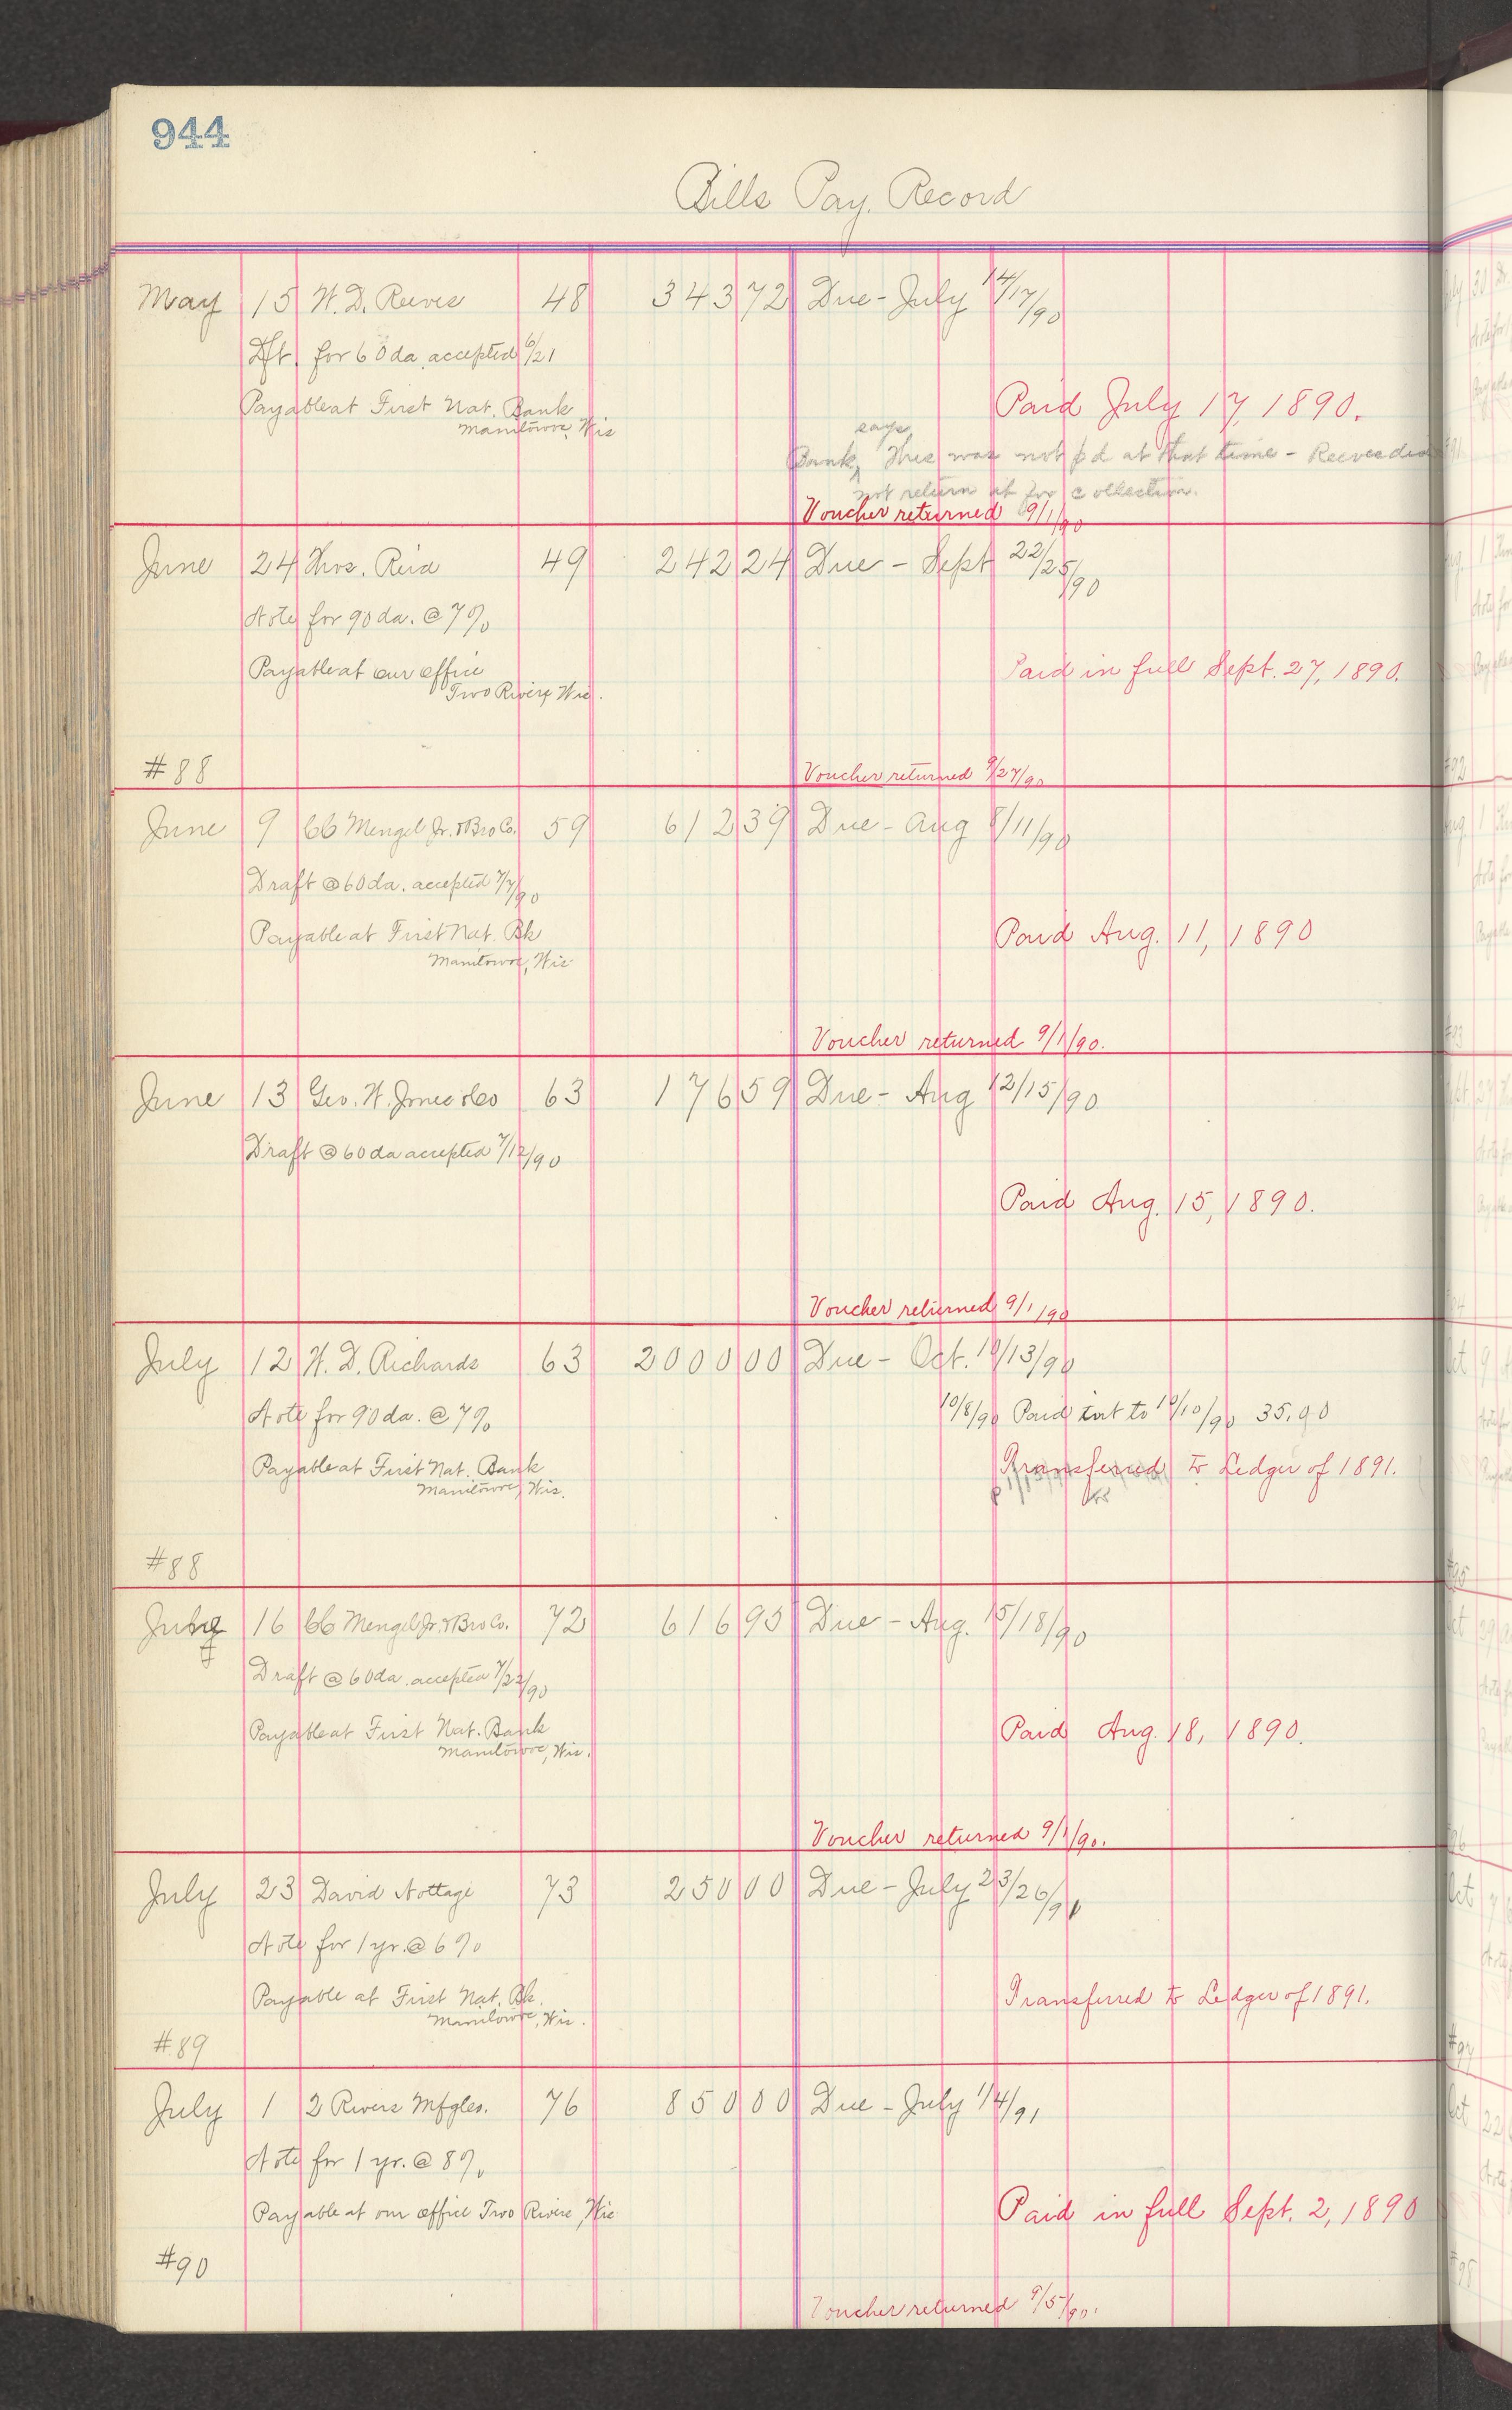 944
Bills Pay. Record
May 15 W. D. Reeves 48 343 72 Due - July 14/17/90
Dft. for 60 da. accepted 6/21
Payable at First Nat. Bank
Manitowoc, Wis
Paid July 17, 1890.
says
Bank, This was not pd at that time - Reeves did
not return it for collection.
Voucher returned 9/1/90
June 24 Thos. Reid 49 242 24 Due - Sept 22/25/90
Note for 90 da. @ 7%
Payable at our office
Two Rivers, Wis.
Paid in full Sept. 27, 1890.
#88
Voucher returned 9/27/90
June 9 CC Mengel Jr. & Bro Co. 59 612 39 Due - Aug 8/11/90
Draft @ 60 da. accepted 7/7/90
Payable at First Nat. Bk
Manitowoc, Wis
Paid Aug. 11, 1890
Voucher returned 9/1/90.
June 13 Geo. W. Jones & Co 63 176 59 Due - Aug 12/15/90
Draft @ 60 da accepted 7/12/90
Paid Aug. 15, 1890.
Voucher returned 9/1/90
July 12 W. D. Richards 63 2000 00 Due - Oct. 10/13/90
Note for 90 da. @ 7%
10/8/90 Paid int to 10/10/90 35.00
Payable at First Nat. Bank
Manitowoc, Wis.
Transferred to Ledger of 1891.
#88
July 16 CC Mengel Jr. & Bro Co. 72 616 95 Due - Aug. 15/18/90
Draft @ 60 da. accepted 7/22/90
Payable at First Nat. Bank
Manitowoc, Wis.
Paid Aug. 18, 1890.
Voucher returned 9/1/90.
July 23 David Nottage 73 250 00 Due - July 23/26/91
Note for 1 yr. @ 6%
Payable at First Nat. Bk.
Manitowoc, Wis.
Transferred to Ledger of 1891.
#89
July 1 2 Rivers Mfg Co. 76 850 00 Due - July 1/4/91
Note for 1 yr. @ 8%
Payable at our office Two Rivers, Wis
Paid in full Sept. 2, 1890
#90
Voucher returned 9/5/90.